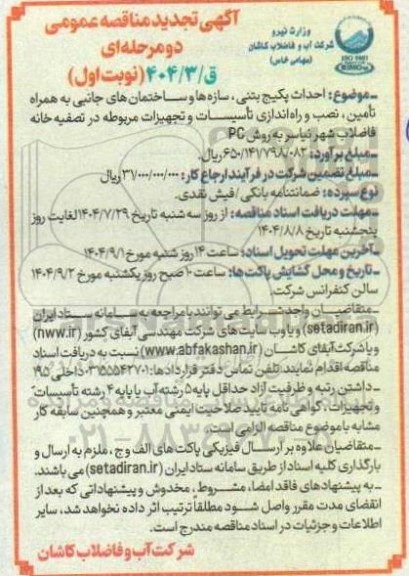 آگهی تجدید مناقصه عمومی
دو مرحله‌ای
ق/۴۰۴/۳ (نوبت اول)
وزارت نیرو
شرکت آب و فاضلاب کاشان
(سهامی خاص)
ـ موضوع: احداث پکیج بتنی، سازه‌ها و ساختمان‌های جانبی به همراه
تأمین، نصب و راه‌اندازی تأسیسات و تجهیزات مربوطه در تصفیه خانه
فاضلاب شهر نیاسر به روش PC
ـ مبلغ برآورد: ۶۵۰/۱۴۷/۷۹۸/۰۸۳ ریال.
ـ مبلغ تضمین شرکت در فرآیند ارجاع کار: ۳۱/۰۰۰/۰۰۰/۰۰۰ ریال
نوع سپرده: ضمانتنامه بانکی/فیش نقدی.
ـ مهلت دریافت اسناد مناقصه: از روز سه شنبه تاریخ ۱۴۰۴/۷/۲۹ لغایت روز
پنجشنبه تاریخ ۱۴۰۴/۸/۸
ـ آخرین مهلت تحویل اسناد: ساعت ۱۴ روز شنبه مورخ ۱۴۰۴/۹/۱
ـ تاریخ و محل گشایش پاکت‌ها: ساعت ۱۰ صبح روز یکشنبه مورخ ۱۴۰۴/۹/۲
سالن کنفرانس شرکت.
ـ متقاضیان واجد شرایط می‌توانند با مراجعه به سامانه ستاد ایران
(setadiran.ir) و یا وب سایت‌های شرکت مهندسی آبفای کشور (nww.ir)
و یا شرکت آبفای کاشان (www.abfakashan.ir) نسبت به دریافت اسناد
مناقصه اقدام نمایند. تلفن تماس دفتر قراردادها: ۰۳۱۵۵۵۴۲۷۰۱ داخلی ۱۹۵
ـ داشتن رتبه و ظرفیت آزاد حداقل پایه ۵ رشته آب یا پایه ۴ رشته تأسیسات
و تجهیزات، گواهی نامه تایید صلاحیت ایمنی معتبر و همچنین سابقه کار
مشابه با موضوع مناقصه الزامی است.
ـ متقاضیان علاوه بر ارسال فیزیکی پاکت‌های الف و ج، ملزم به ارسال و
بارگذاری کلیه اسناد از طریق سامانه ستاد ایران (setadiran.ir) می باشند.
ـ به پیشنهادهای فاقد امضا، مشروط، مخدوش و پیشنهاداتی که بعد از
انقضای مدت مقرر واصل شود مطلقاً ترتیب اثر داده نخواهد شد، سایر
اطلاعات و جزئیات در اسناد مناقصه مندرج است.
شرکت آب و فاضلاب کاشان